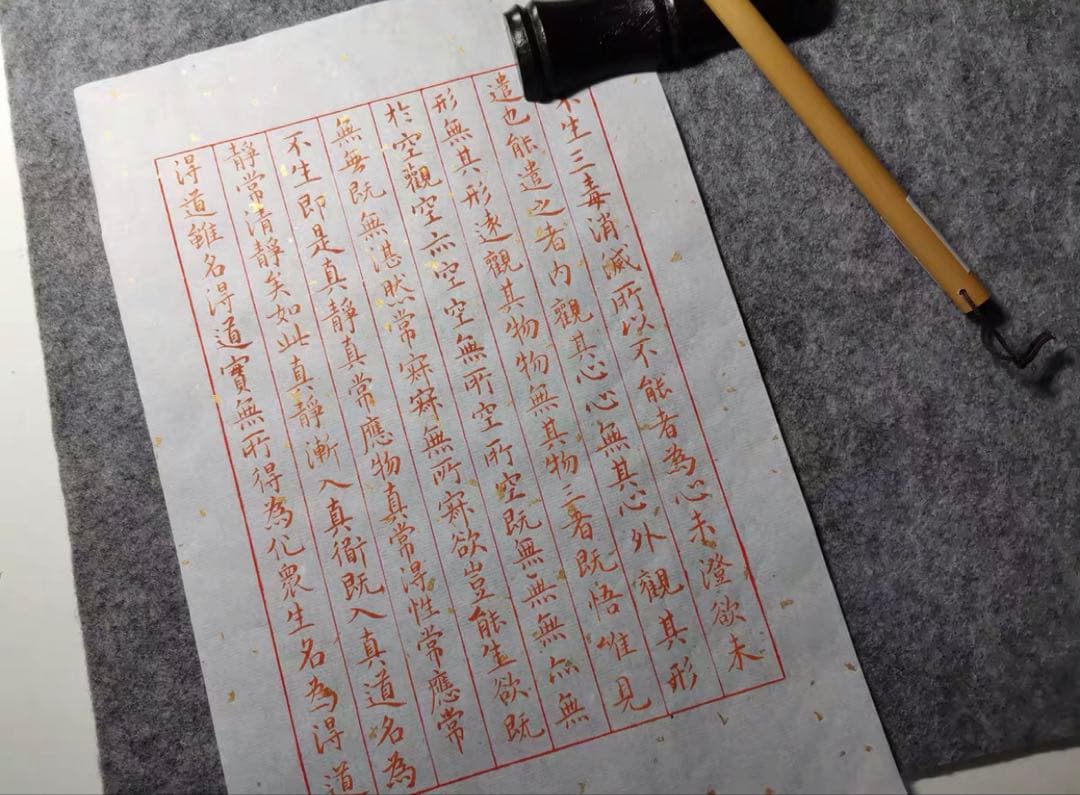 不生三毒消滅所以不能者為心未澄欲未
遣也能遣之者内觀其心心無其心外觀其形
形無其形遠觀其物物無其物三者既悟唯見
於空觀空亦空空無所空所空既無無無亦無
無無既無湛然常寂寂無所寂欲豈能生欲既
不生即是真靜真常應物真常得性常應常
靜常清靜矣如此真靜漸入真衟既入真道名為
得道雖名得道實無所得為化眾生名為得道